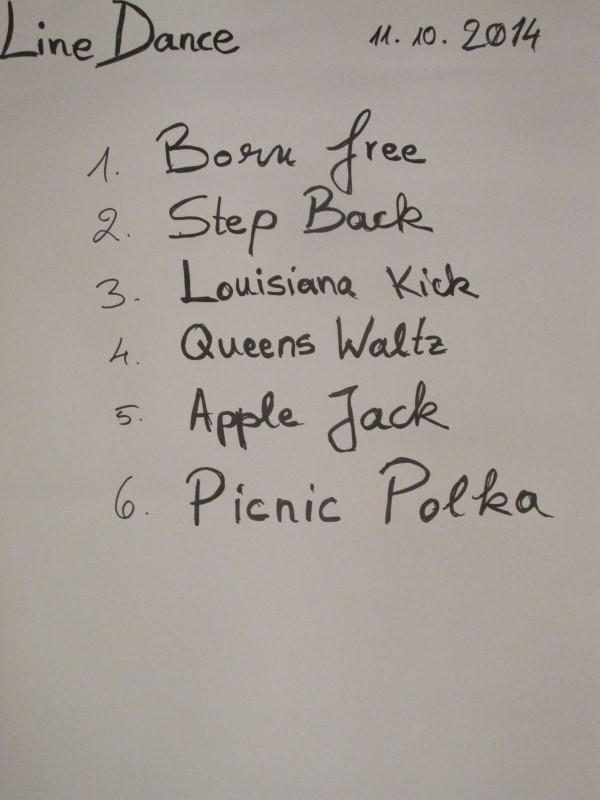 Line Dance 11. 10. 2014
1. Born free
2. Step Back
3. Louisiana Kick
4. Queens Waltz
5. Apple Jack
6. Picnic Polka